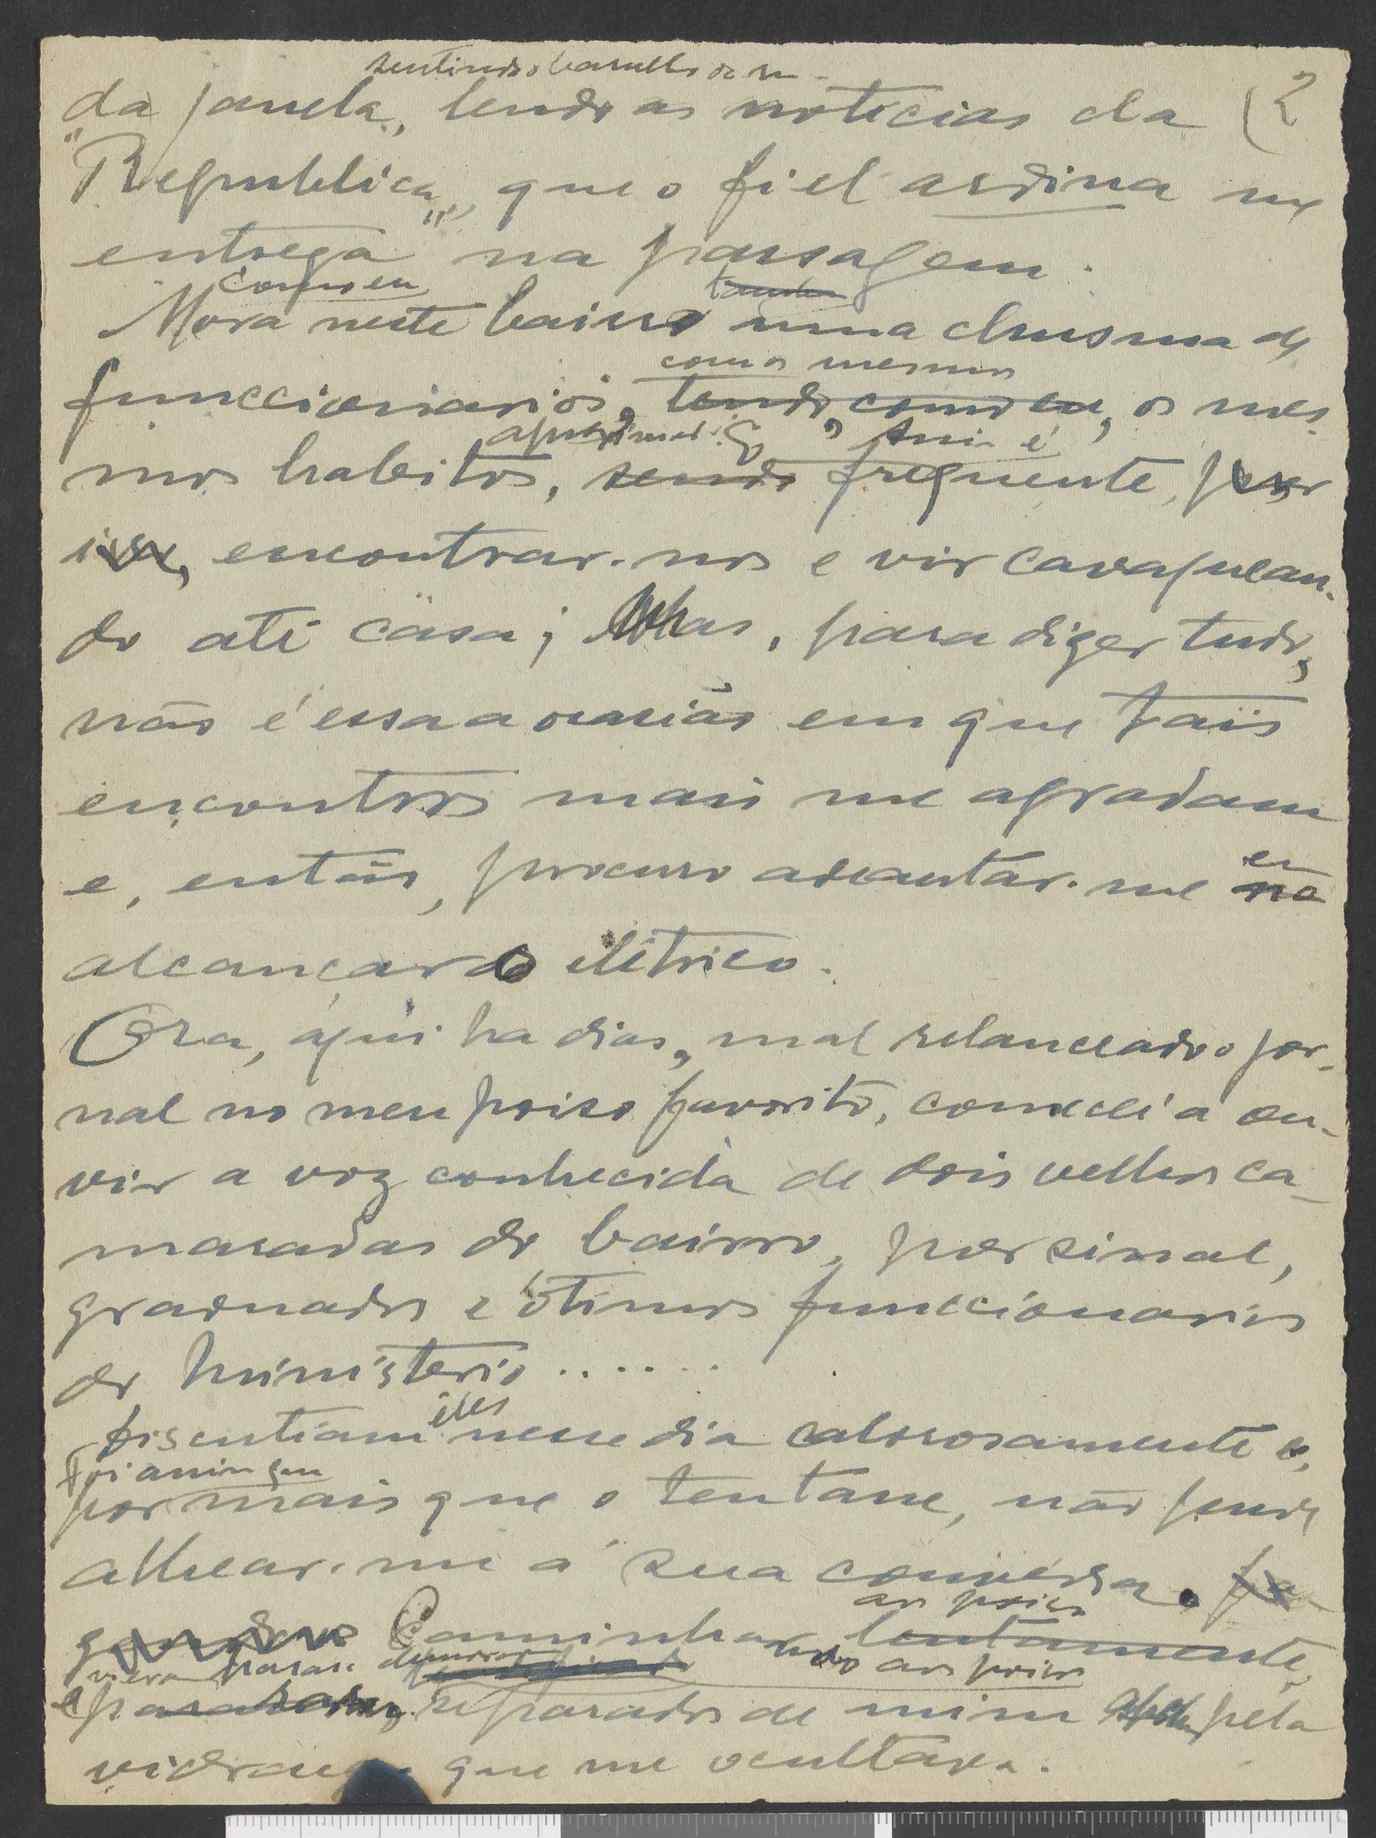 sentindo o barulho da
da janela, lendo as noticias da (2
"Republica", que o fiel ardina me
entrega na passagem.
como eu
Mora neste bairro uma chusma de
como os mesmos
funccionarios, tendo, como eu, os mes-
mos habitos, sendo frequente, por
isso, encontrar-nos e vir cavaquean-
do até casa; Mas, para dizer tudo,
não é essa a ocasião em que tais
encontros mais me agradam
en
e, então, procuro adeantar-me na
alcançar o elétrico.
Ora, aqui ha dias, mal relanceado o jor-
nal no meu poiso favorito, comecei a ou-
vir a voz conhecida de dois velhos ca-
maradas do bairro, por sinal,
graduados e ótimos funccionarios
do Ministerio ......
eles
Discutiam nesse dia calorosamente e,
foi assim que
por mais que o tentasse, não pude
alhear-me á sua conversa. fa-
aos poucos
Caminhando lentamente,
vieram parar aos poucos
e separados de mim pela
vidraça que me ocultava.